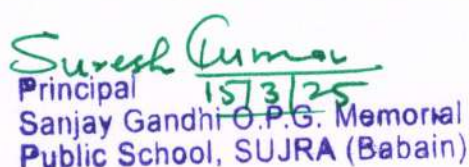 Suresh Kumar
Principal 15/3/25
Sanjay Gandhi O.P.G. Memorial
Public School, SUJRA (Babain)